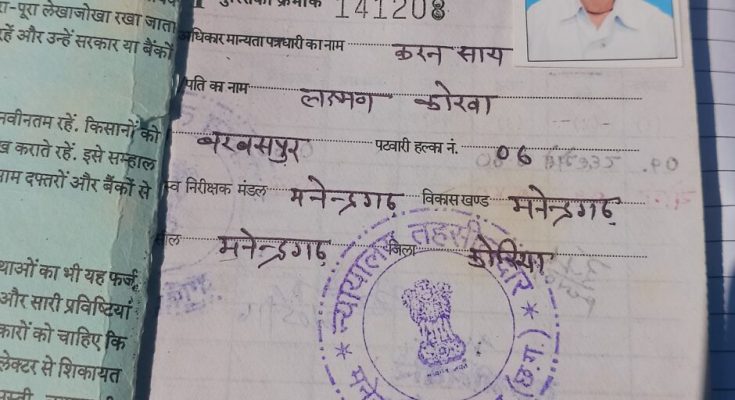 पुस्तिका क्रमांक 141208
अधिकार मान्यता पत्रधारी का नाम करन साय
पति का नाम लक्ष्मण कोरवा
बरबसपुर पटवारी हल्का नं. 06
स्व निरीक्षक मंडल मनेन्द्रगढ़ विकास खण्ड मनेन्द्रगढ़
मनेन्द्रगढ़ जिला कोरिया
न्यायालय तहसीलदार
(छ.ग.)
रा-पूरा लेखाजोखा रखा जाता
रहें और उन्हें सरकार या बैंकों
नवीनतम रहें. किसानों को
ख कराते रहें. इसे सम्हाल
दफ्तरों और बैंकों से
थाओं का भी यह फर्ज
और सारी प्रविष्टियां
कारों को चाहिए कि
लेक्टर से शिकायत